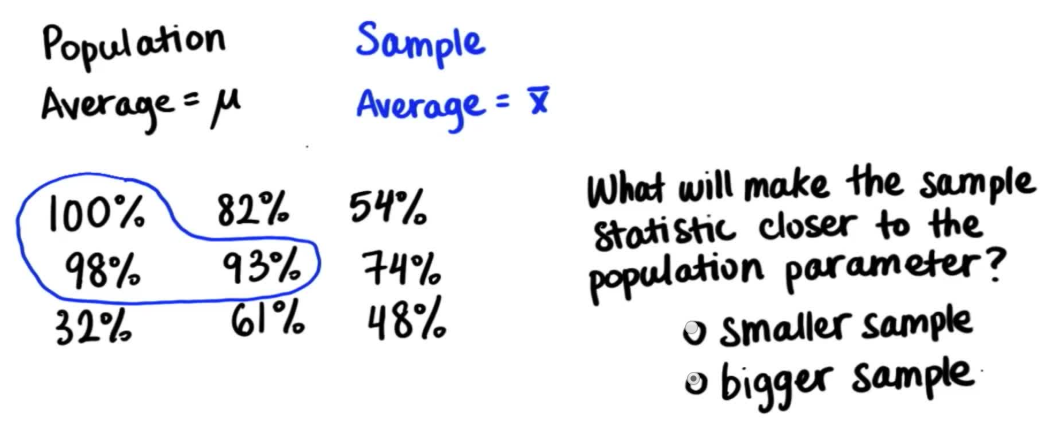 Population
Average = μ
Sample
Average = x̄
100% 82% 54%
98% 93% 74%
32% 61% 48%
What will make the sample
statistic closer to the
population parameter?
smaller sample
bigger sample